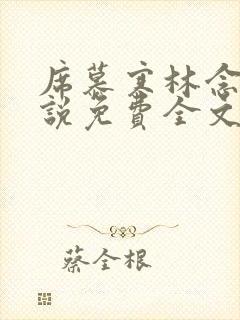 席慕寒林念
説免費全文
蔡全根